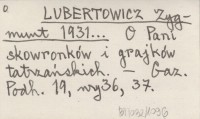 LUBERTOWICZ Zyg-
munt 1931... O Pani
skowronków i grajków
tatrzańskich. – Gaz.
Podh. 19, wy36, 37.